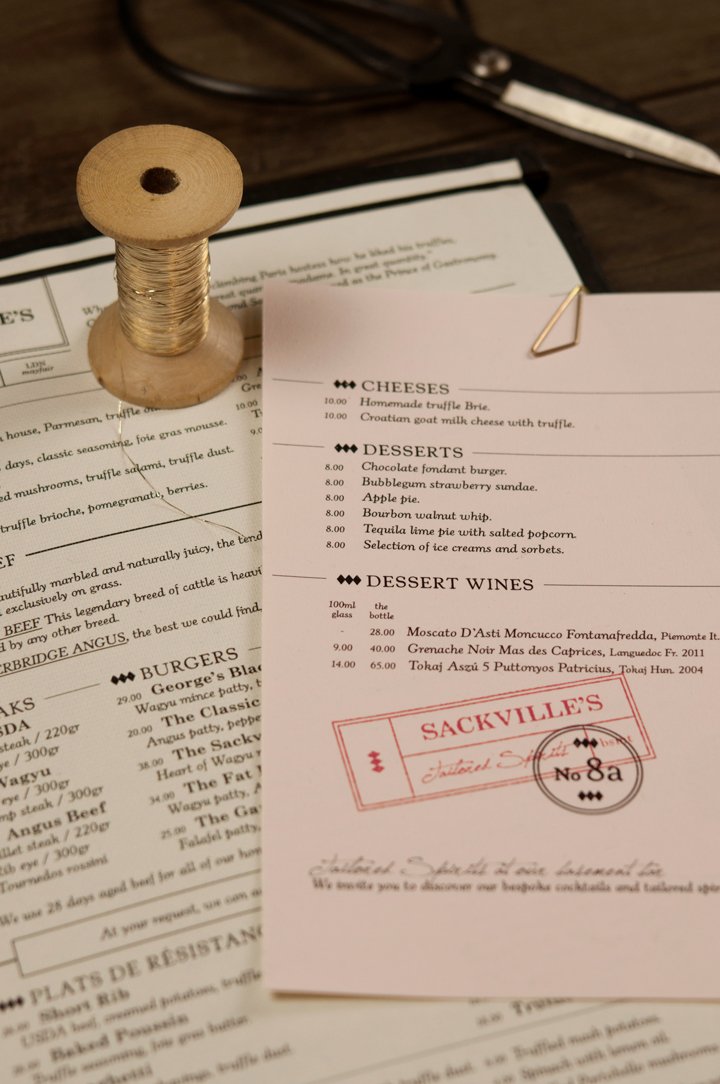 climbing Paris hostess how he liked his truffles,
madame. In great quantity."
as the Prince of Gastronomy.
E'S
LDN
mayfair
house, Parmesan, truffle
days, classic seasoning, foie gras mousse.
ed mushrooms, truffle salami, truffle dust.
truffle brioche, pomegranate, berries.
EF
autifully marbled and naturally juicy, the tend
exclusively on grass.
BEEF This legendary breed of cattle is heavi
d by any other breed.
ERBRIDGE ANGUS, the best we could find,
AKS
SDA
steak / 220gr
eye / 300gr
Wagyu
eye / 300gr
mp steak / 300gr
Angus Beef
llet steak / 220gr
Rib eye / 300gr
Tournedos rossini
BURGERS
29.00 George's Blac
Wagyu mince patty, t
20.00 The Classic
Angus patty, peppe
38.00 The Sackv
Heart of Wagyu
34.00 The Fat
Wagyu patty,
25.00 The Ga
Falafel patty,
We use 28 days aged beef for all of our
At your request, we can
PLATS DE RÉSISTANC
Short Rib
USDA beef, creamed potatoes, truffle
Baked Poussin
Truffle seasoning, foie gras butter.
truffle dust.
Truffled mash potatoes.
Spinach with lemon oil.
CHEESES
10.00 Homemade truffle Brie.
10.00 Croatian goat milk cheese with truffle.
DESSERTS
8.00 Chocolate fondant burger.
8.00 Bubblegum strawberry sundae.
8.00 Apple pie.
8.00 Bourbon walnut whip.
8.00 Tequila lime pie with salted popcorn.
8.00 Selection of ice creams and sorbets.
DESSERT WINES
100ml the
glass bottle
- 28.00 Moscato D'Asti Moncucco Fontanafredda, Piemonte It.
9.00 40.00 Grenache Noir Mas des Caprices, Languedoc Fr. 2011
14.00 65.00 Tokaj Aszú 5 Puttonyos Patricius, Tokaj Hun. 2004
SACKVILLE'S
Tailored Spirits
bsmt
No 8a
Tailored Spirits at our basement bar
We invite you to discover our bespoke cocktails and tailored spir